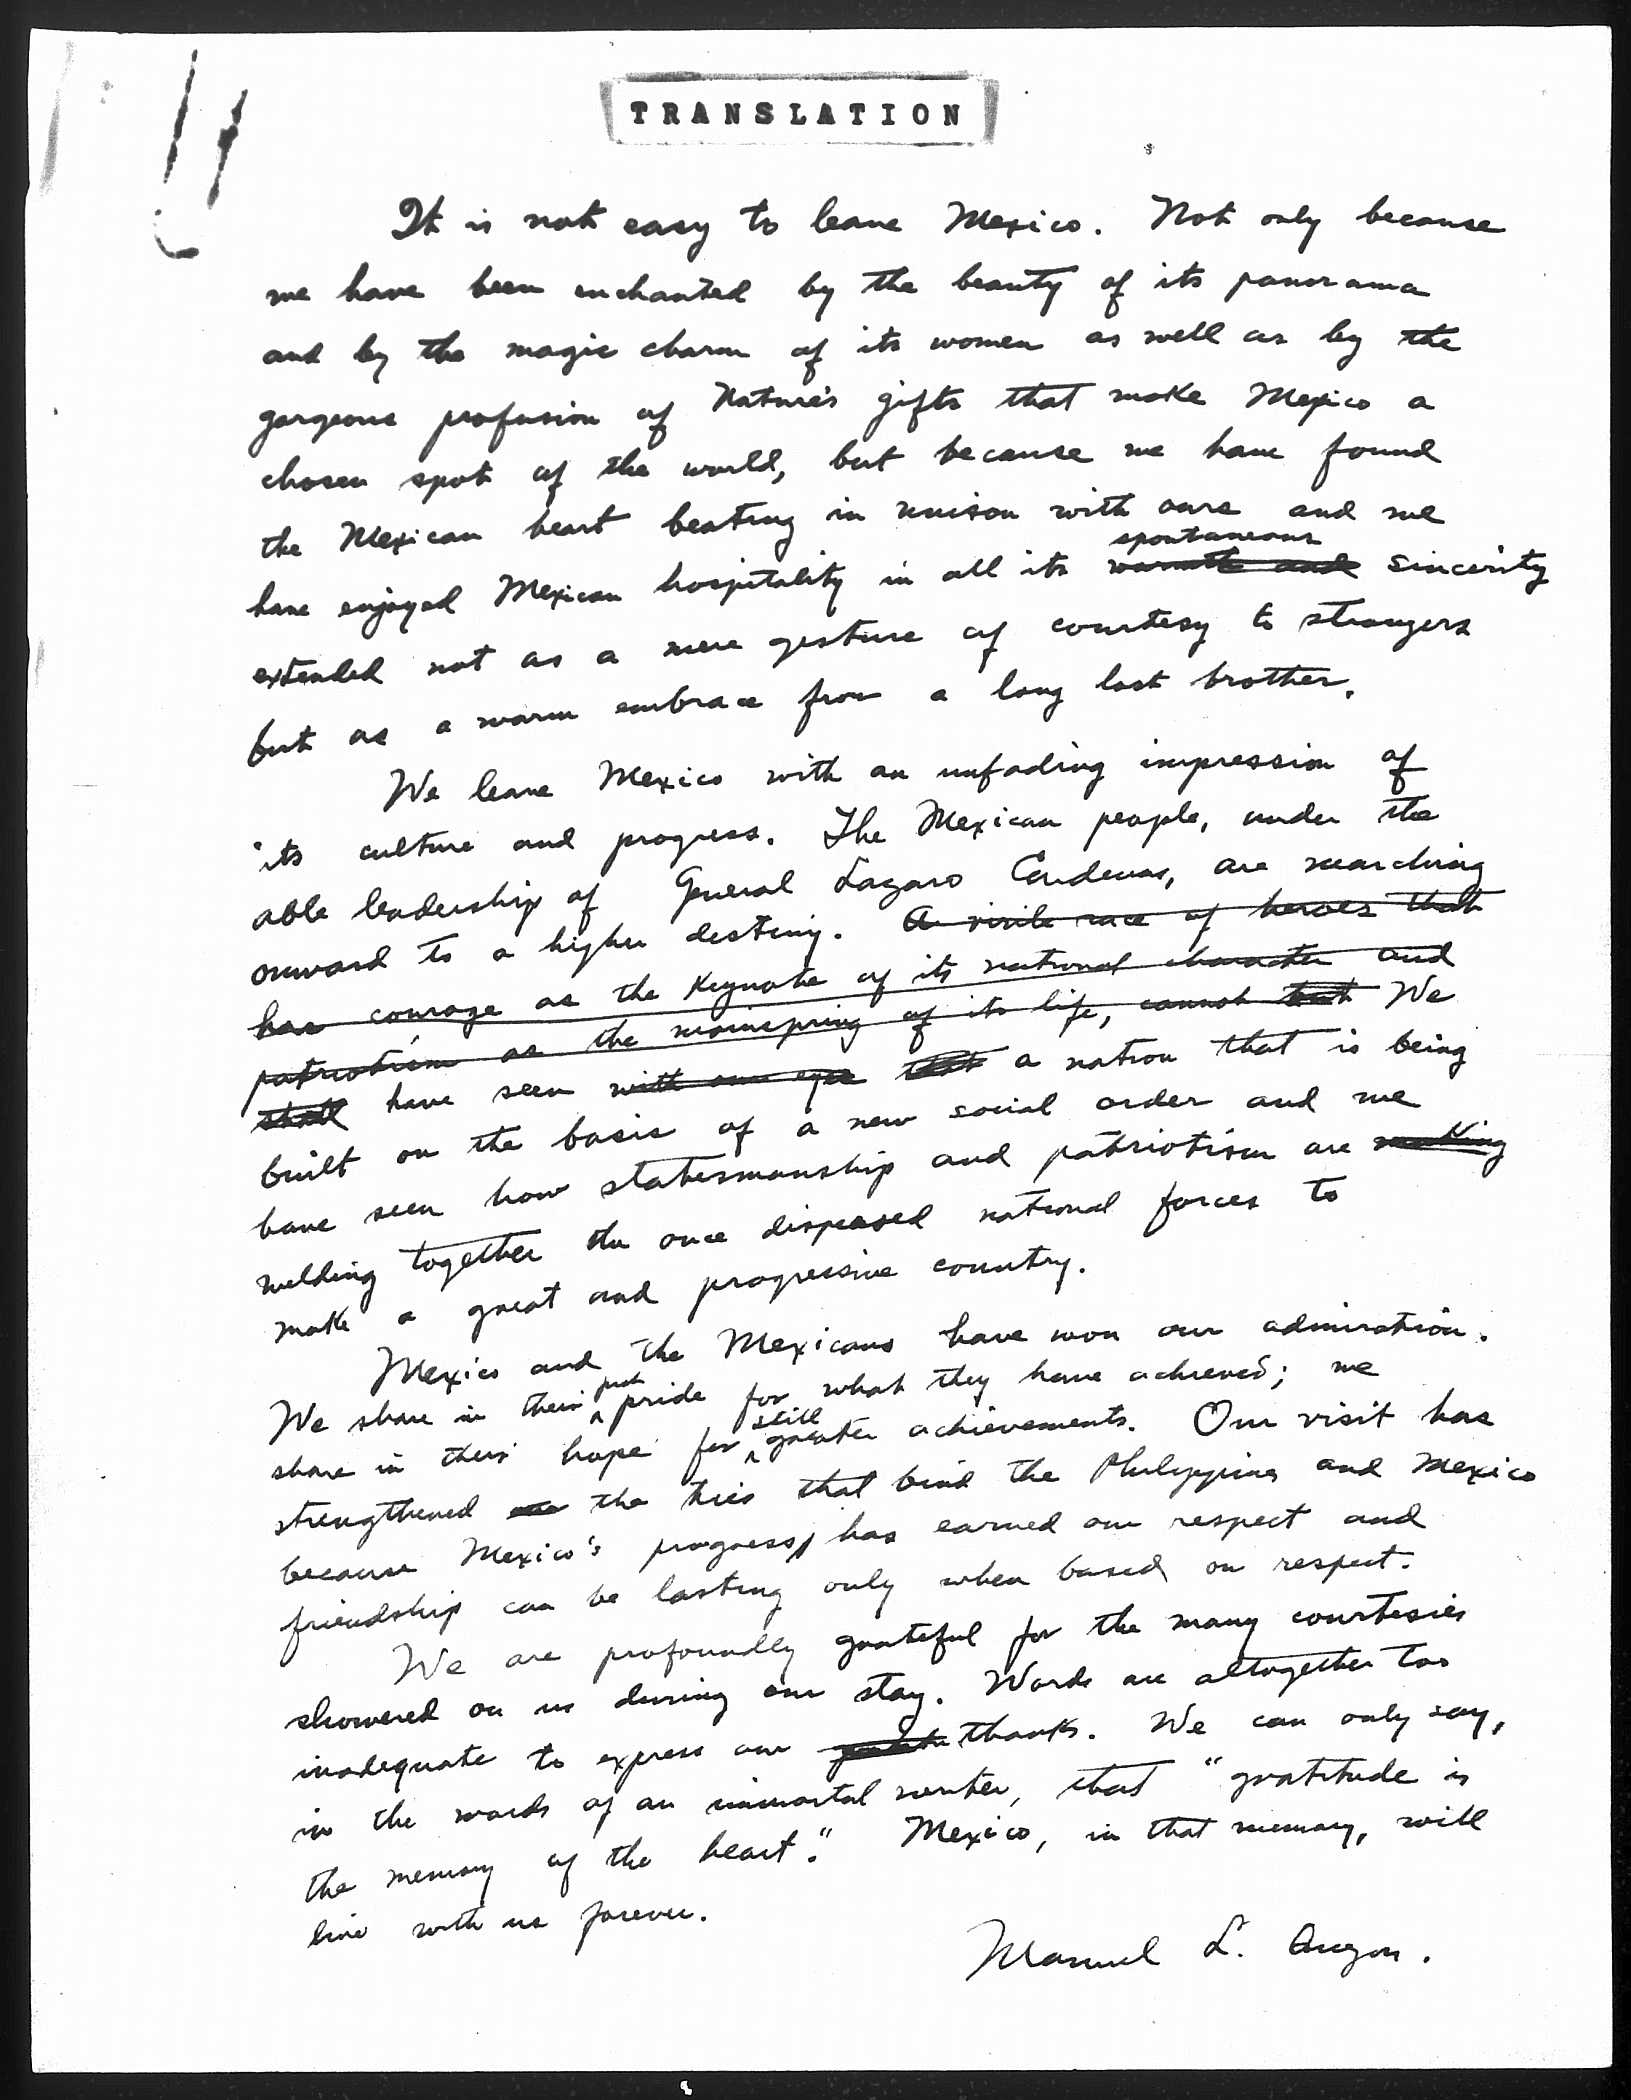 TRANSLATION
It is not easy to leave Mexico. Not only because
we have been enchanted by the beauty of its panorama
and by the magic charm of its women as well as by the
gorgeous profusion of Nature's gifts that make Mexico a
chosen spot of the world, but because we have found
the Mexican heart beating in unison with ours and we
spontaneous
have enjoyed Mexican hospitality in all its warmth and sincerity
extended not as a mere gesture of courtesy to strangers
but as a warm embrace from a long lost brother.
We leave Mexico with an unfading impression of
its culture and progress. The Mexican people, under the
able leadership of General Lazaro Cardenas, are marching
onward to a higher destiny. A virile race of heroes that
has courage as the keynote of its national character and
patriotism as the mainspring of its life, cannot but We
shall have seen with our eyes that a nation that is being
built on the basis of a new social order and we
have seen how statesmanship and patriotism are making
welding together the once dispersed national forces to
make a great and progressive country.
Mexico and the Mexicans have won our admiration.
just
We share in their pride for what they have achieved; we
still
share in their hope for greater achievements. Our visit has
strengthened the ties that bind the Philippines and Mexico
because Mexico's progress has earned our respect and
friendship can be lasting only when based on respect.
We are profoundly grateful for the many courtesies
showered on us during our stay. Words are altogether too
inadequate to express our thanks. We can only say,
in the words of an immortal writer, that "gratitude is
the memory of the heart." Mexico, in that memory, will
live with us forever.
Manuel L.